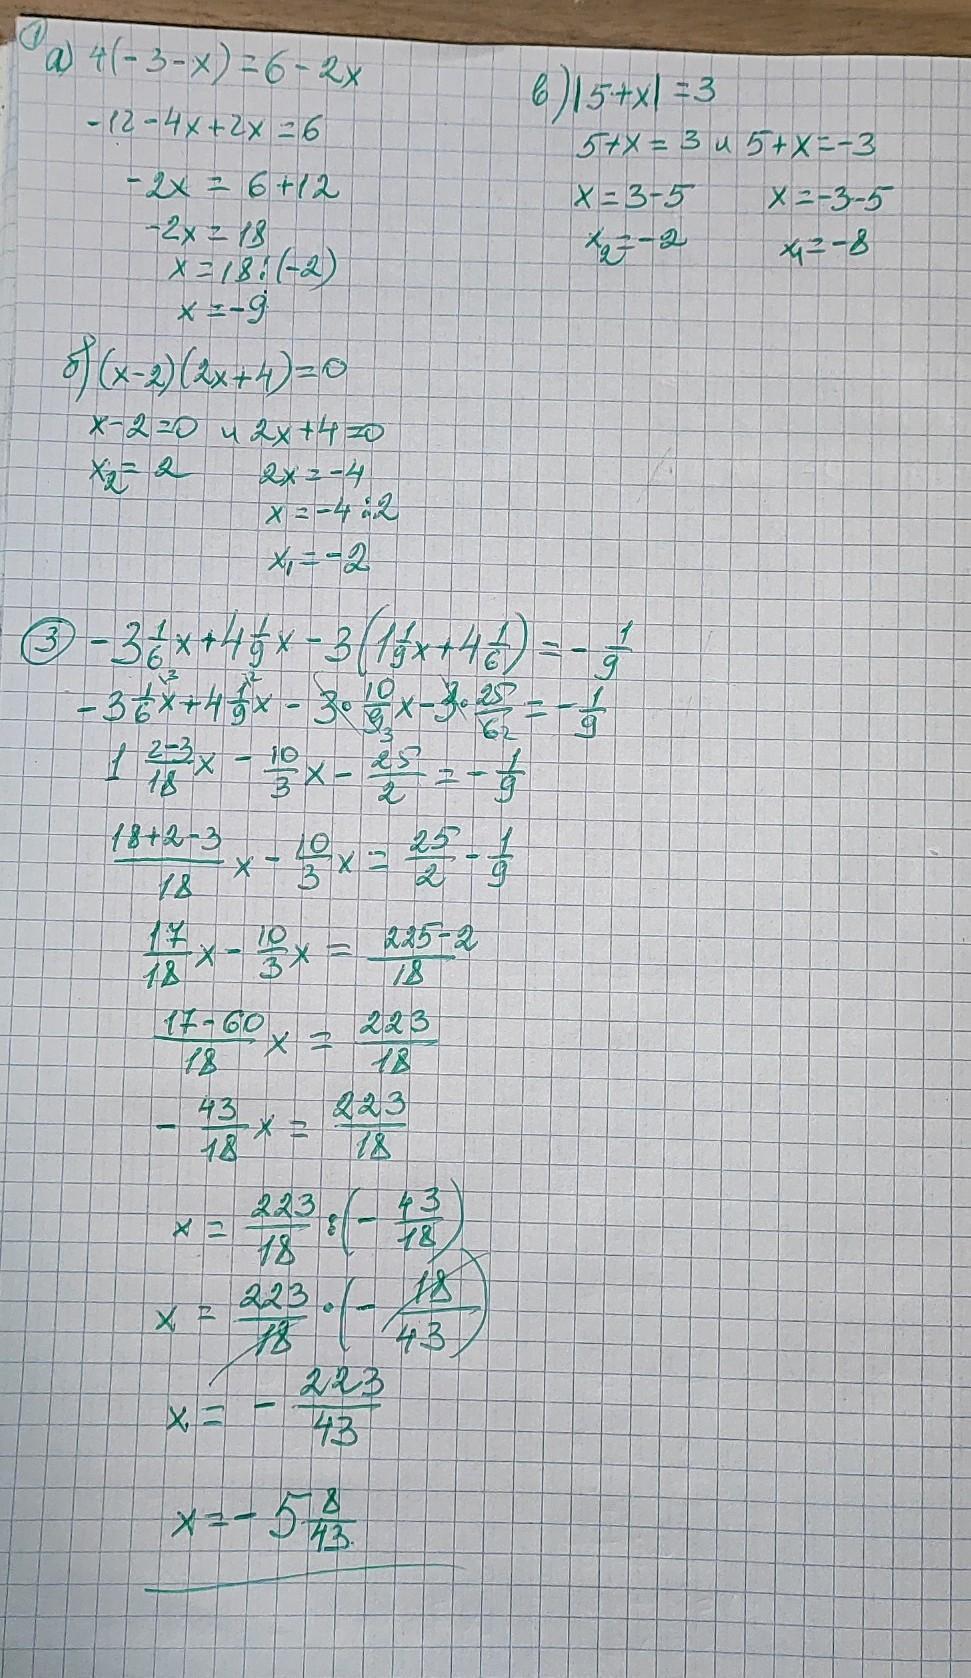 ① а) 4(-3-x)=6-2x
-12-4x+2x=6
-2x=6+12
-2x=18
x=18:(-2)
x=-9
б) (x-2)(2x+4)=0
x-2=0 и 2x+4=0
x₂=2 2x=-4
x=-4:2
x₁=-2
в) |5+x|=3
5+x=3 и 5+x=-3
x=3-5 x=-3-5
x₂=-2 x₁=-8
③ -3 1/6 x + 4 1/9 x - 3(1 1/9 x + 4 1/6) = - 1/9
-3 1/6 \3 x + 4 1/9 \2 x - 3 · 10/9 3 x - 3 · 25/6 2 = - 1/9
1 2-3/18 x - 10/3 x - 25/2 = - 1/9
18+2-3/18 x - 10/3 x = 25/2 - 1/9
17/18 x - 10/3 x = 225-2/18
17-60/18 x = 223/18
- 43/18 x = 223/18
x = 223/18 : (- 43/18)
x = 223/18 · (- 18/43)
x = - 223/43
x = - 5 8/43